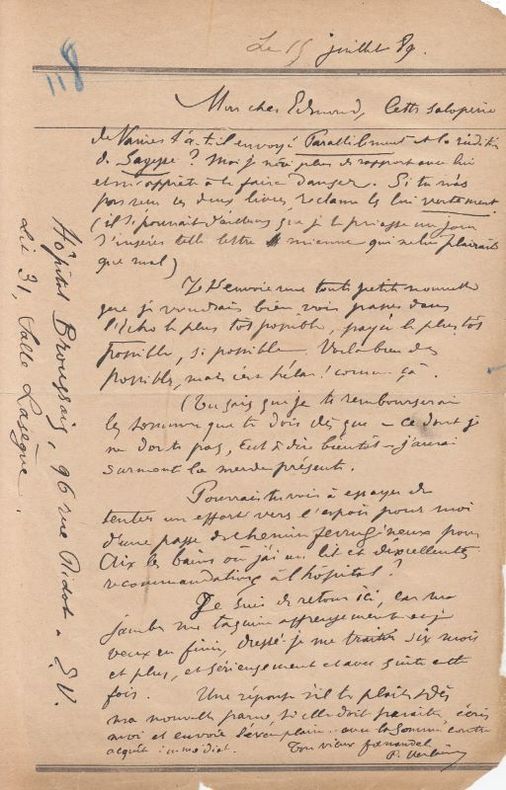 Le 15 juillet 89.
118
Mon cher Edmond, Cette saloperie
de Vanier t'a-t-il envoyé Parallèlement et la réédition
de Sagesse ? Moi je n'ai plus de rapport avec lui
et m'apprête à le faire danser. Si tu n'as
pas reçu ces deux livres, réclame les lui vertement
(il se pourrait d'ailleurs que je te priasse un jour
d'insérer telle lettre mienne qui ne lui plairait
que mal)
Je t'envoie une toute petite nouvelle
que je voudrais bien voir passer dans
l'Echo le plus tôt possible, payée le plus tôt
possible, si possible. Voilà bien des
possible, mais c'est hélas ! comme ça.
(Tu sais que je te rembourserai
les sommes que te dois dès que – ce dont je
ne doute pas, c'est à dire bientôt – j'aurai
surmonté la merde présente.
Pourrais-tu voir à essayer de
tenter un effort vers l'espoir pour moi
d'une passe de chemin ferrugineux pour
Aix les bains où j'ai un lit et d'excellentes
recommandations à l'hôpital ?
Je suis de retour ici, car ma
jambe me taquine affreusement et je
veux en finir, dussé-je me traiter six mois
et plus, et sérieusement et avec suite cette
fois. Une réponse s'il te plaît et dès
ma nouvelle parue, si elle doit paraître, écris
moi et envoie l'exemplaire avec la somme contre
acquit immédiat. Ton vieux
P. Verlaine
Hôpital Broussais, 96 rue Didot. E.V.
Lit 31, Salle Lasègue.